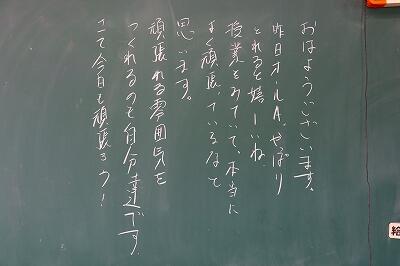 おはようございます。
昨日オールA。やっぱり
とれると嬉しいね。
授業をみていて、本当に
よく頑張っているなと
思います。
頑張れる雰囲気を
つくれるのも自分達です。
さて今日も頑張ろう!
給